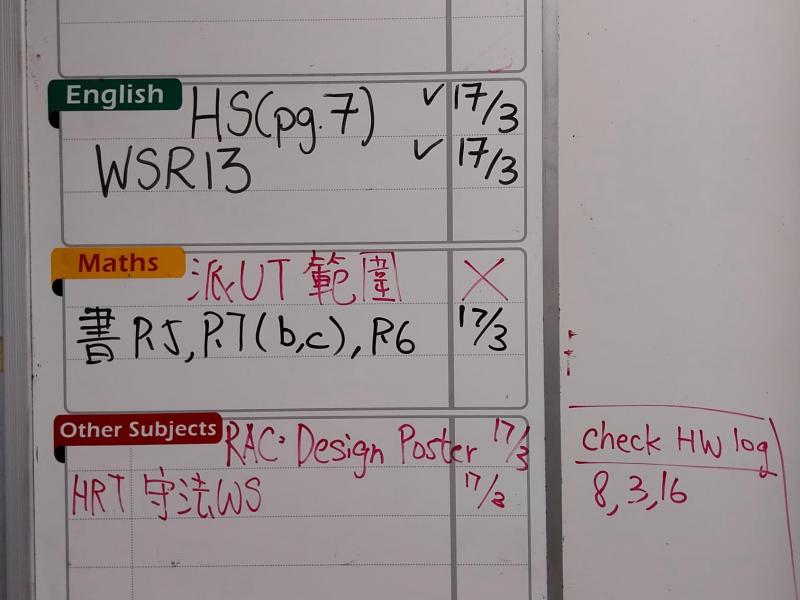 English
HS(pg.7) ✓ 17/3
WSR13 ✓ 17/3
Maths
派UT範圍 ×
書 P.5, P.7(b,c), P.6 17/3
Other Subjects
RAC: Design Poster 17/3
HRT 守法WS 17/3
Check HW log
8, 3, 16